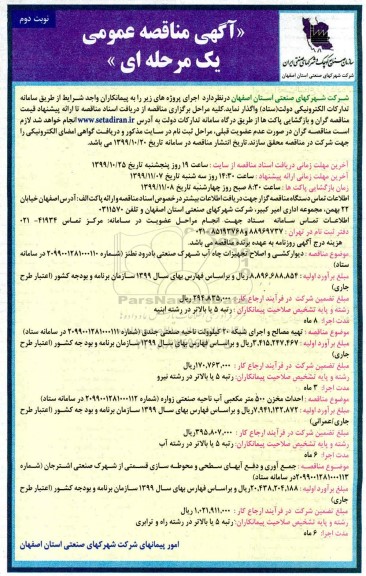 نوبت دوم
«آگهی مناقصه عمومی
یک مرحله ای»
شرکت شهرکهای صنعتی استان اصفهان
شرکت شهرکهای صنعتی استان اصفهان درنظردارد اجرای پروژه های زیر را به پیمانکاران واجد شرایط از طریق سامانه
تدارکات الکترونیکی دولت(ستاد) واگذار نماید.کلیه مراحل برگزاری مناقصه از دریافت اسناد مناقصه تا ارائه پیشنهاد قیمت
مناقصه گران و بازگشایی پاکت ها از طریق درگاه سامانه تدارکات دولت به آدرس www.setadiran.ir انجام خواهد شد لازم
است مناقصه گران در صورت عدم عضویت قبلی، مراحل ثبت نام در سایت مذکور و دریافت گواهی امضای الکترونیکی را
جهت شرکت در مناقصه محقق سازند.تاریخ انتشار مناقصه در سامانه تاریخ ۱۳۹۹/۱۰/۲۰ می باشد.
آخرین مهلت زمانی دریافت اسناد مناقصه از سایت : ساعت ۱۹ روز پنجشنبه تاریخ ۱۳۹۹/۱۰/۲۵
آخرین مهلت زمانی ارائه پیشنهاد : ساعت ۱۴:۳۰ روز سه شنبه تاریخ ۱۳۹۹/۱۱/۰۷
زمان بازگشایی پاکت ها : ساعت ۸:۳۰ صبح روز چهارشنبه تاریخ ۱۳۹۹/۱۱/۰۸
اطلاعات تماس دستگاه مناقصه گزار جهت دریافت اطلاعات بیشتر در خصوص اسناد مناقصه و ارائه پاکت الف: آدرس اصفهان خیابان
۲۲ بهمن، مجموعه اداری امیر کبیر، شرکت شهرکهای صنعتی استان اصفهان و تلفن ۰۳۱۱۵۷۰
اطلاعات تماس سامانه ستاد جهت انجام مراحل عضویت در سامانه: مرکز تماس ۴۱۹۳۴ - ۰۲۱
دفتر ثبت نام در تهران : ۸۸۹۶۹۷۳۷ و ۸۵۱۹۳۷۶۸ - ۰۲۱
هزینه درج آگهی روزنامه به عهده برنده مناقصه می باشد.
موضوع مناقصه : دیوارکشی و اصلاح تجهیزات چاه آب شهرک صنعتی بادرود نطنز (شماره ۲۰۹۹۰۰۱۲۸۱۰۰۰۱۱۰ در سامانه
ستاد)
مبلغ برآورد اولیه : ۸،۸۹۶،۶۸۸،۸۵۴ ریال و براساس فهارس بهای سال ۱۳۹۹ سازمان برنامه و بودجه کشور (اعتبار طرح
جاری)
مبلغ تضمین شرکت در فرآیند ارجاع کار : ۴۹۴،۸۳۵،۰۰۰ ریال
رشته و پایه تشخیص صلاحیت پیمانکاران: رتبه ۵ یا بالاتر در رشته ابنیه
مدت اجرا: ۸ ماه
موضوع مناقصه : تهیه مصالح و اجرای شبکه ۲۰ کیلوولت ناحیه صنعتی جندق (شماره ۲۰۹۹۰۰۱۲۸۱۰۰۰۱۱۱ در سامانه ستاد)
مبلغ برآورد اولیه : ۳،۴۱۵،۲۴۷،۴۶۷ ریال و براساس فهارس بهای سال ۱۳۹۹ سازمان برنامه و بودجه کشور (اعتبار طرح
جاری)
مبلغ تضمین شرکت در فرآیند ارجاع کار : ۱۷۰،۷۶۳،۰۰۰ ریال
رشته و پایه تشخیص صلاحیت پیمانکاران: رتبه ۵ یا بالاتر در رشته نیرو
مدت اجرا: ۳ ماه
موضوع مناقصه : احداث مخزن ۵۰۰ متر مکعبی آب ناحیه صنعتی زواره (شماره ۲۰۹۹۰۰۱۲۸۱۰۰۰۱۱۲ در سامانه ستاد)
مبلغ برآورد اولیه : ۷،۹۴۱،۱۳۲،۸۷۲ ریال و براساس فهارس بهای سال ۱۳۹۹ سازمان برنامه و بودجه کشور (اعتبار طرح
جاری/عمرانی)
مبلغ تضمین شرکت در فرآیند ارجاع کار : ۳۹۵،۸۰۷،۰۰۰ ریال
رشته و پایه تشخیص صلاحیت پیمانکاران: رتبه ۵ یا بالاتر در رشته آب
مدت اجرا: ۶ ماه
موضوع مناقصه : جمع آوری و دفع آبهای سطحی و محوطه سازی قسمتی از شهرک صنعتی اشترجان (شماره
۲۰۹۹۰۰۱۲۸۱۰۰۰۱۱۳ در سامانه ستاد)
مبلغ برآورد اولیه : ۲۰،۴۳۸،۲۰۴،۱۸۸ ریال و براساس فهارس بهای سال ۱۳۹۹ سازمان برنامه و بودجه کشور (اعتبار طرح
جاری)
مبلغ تضمین شرکت در فرآیند ارجاع کار : ۱،۰۲۱،۹۱۱،۰۰۰ ریال
رشته و پایه تشخیص صلاحیت پیمانکاران: رتبه ۵ یا بالاتر در رشته راه و ترابری
مدت اجرا: ۶ ماه
امور پیمانهای شرکت شهرکهای صنعتی استان اصفهان